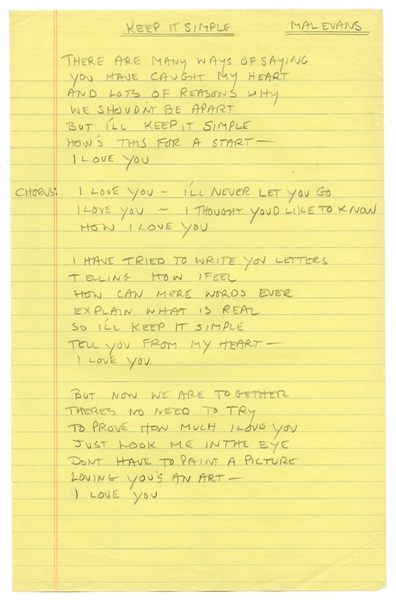 KEEP IT SIMPLE MAL EVANS
THERE ARE MANY WAYS OF SAYING
YOU HAVE CAUGHT MY HEART
AND LOTS OF REASONS WHY
WE SHOUDN'T BE APART
BUT I'LL KEEP IT SIMPLE
HOW'S THIS FOR A START—
I LOVE YOU
CHORUS: I LOVE YOU – I'LL NEVER LET YOU GO
I LOVE YOU – I THOUGHT YOU'D LIKE TO KNOW
HOW I LOVE YOU
I HAVE TRIED TO WRITE YOU LETTERS
TELLING HOW I FEEL
HOW CAN MERE WORDS EVER
EXPLAIN WHAT IS REAL
SO I'LL KEEP IT SIMPLE
TELL YOU FROM MY HEART—
I LOVE YOU
BUT NOW WE ARE TOGETHER
THERES NO NEED TO TRY
TO PROVE HOW MUCH I LOVE YOU
JUST LOOK ME IN THE EYE
DONT HAVE TO PAINT A PICTURE
LOVING YOU'S AN ART—
I LOVE YOU